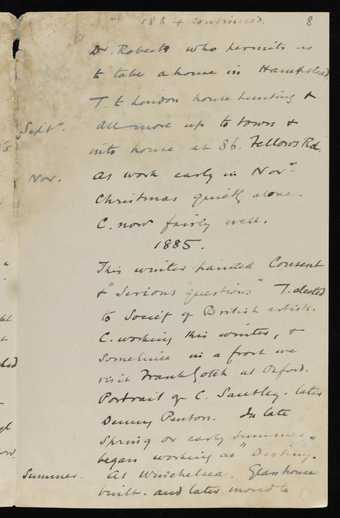 1884 continued. 8
Dr. Roberts who permits us
to take a house in Hampstead
T. to London house hunting &
Septr. all move up to town &
into house at 36. Fellows Rd.
Nov. as work early in Novr.
Christmas quietly alone.
C. now fairly well.
1885.
This winter painted Consent
& "Serious questions" T. elected
to Society of British artists.
C. working this winter, &
sometime in a frost we
visit Frank Gotch at Oxford.
Portrait of C. Santley. later
Denny Penton. In late
Spring or early Summer,
began working as "Destiny.
Summer. At Winchelsea. Glass house
built. and later moved to